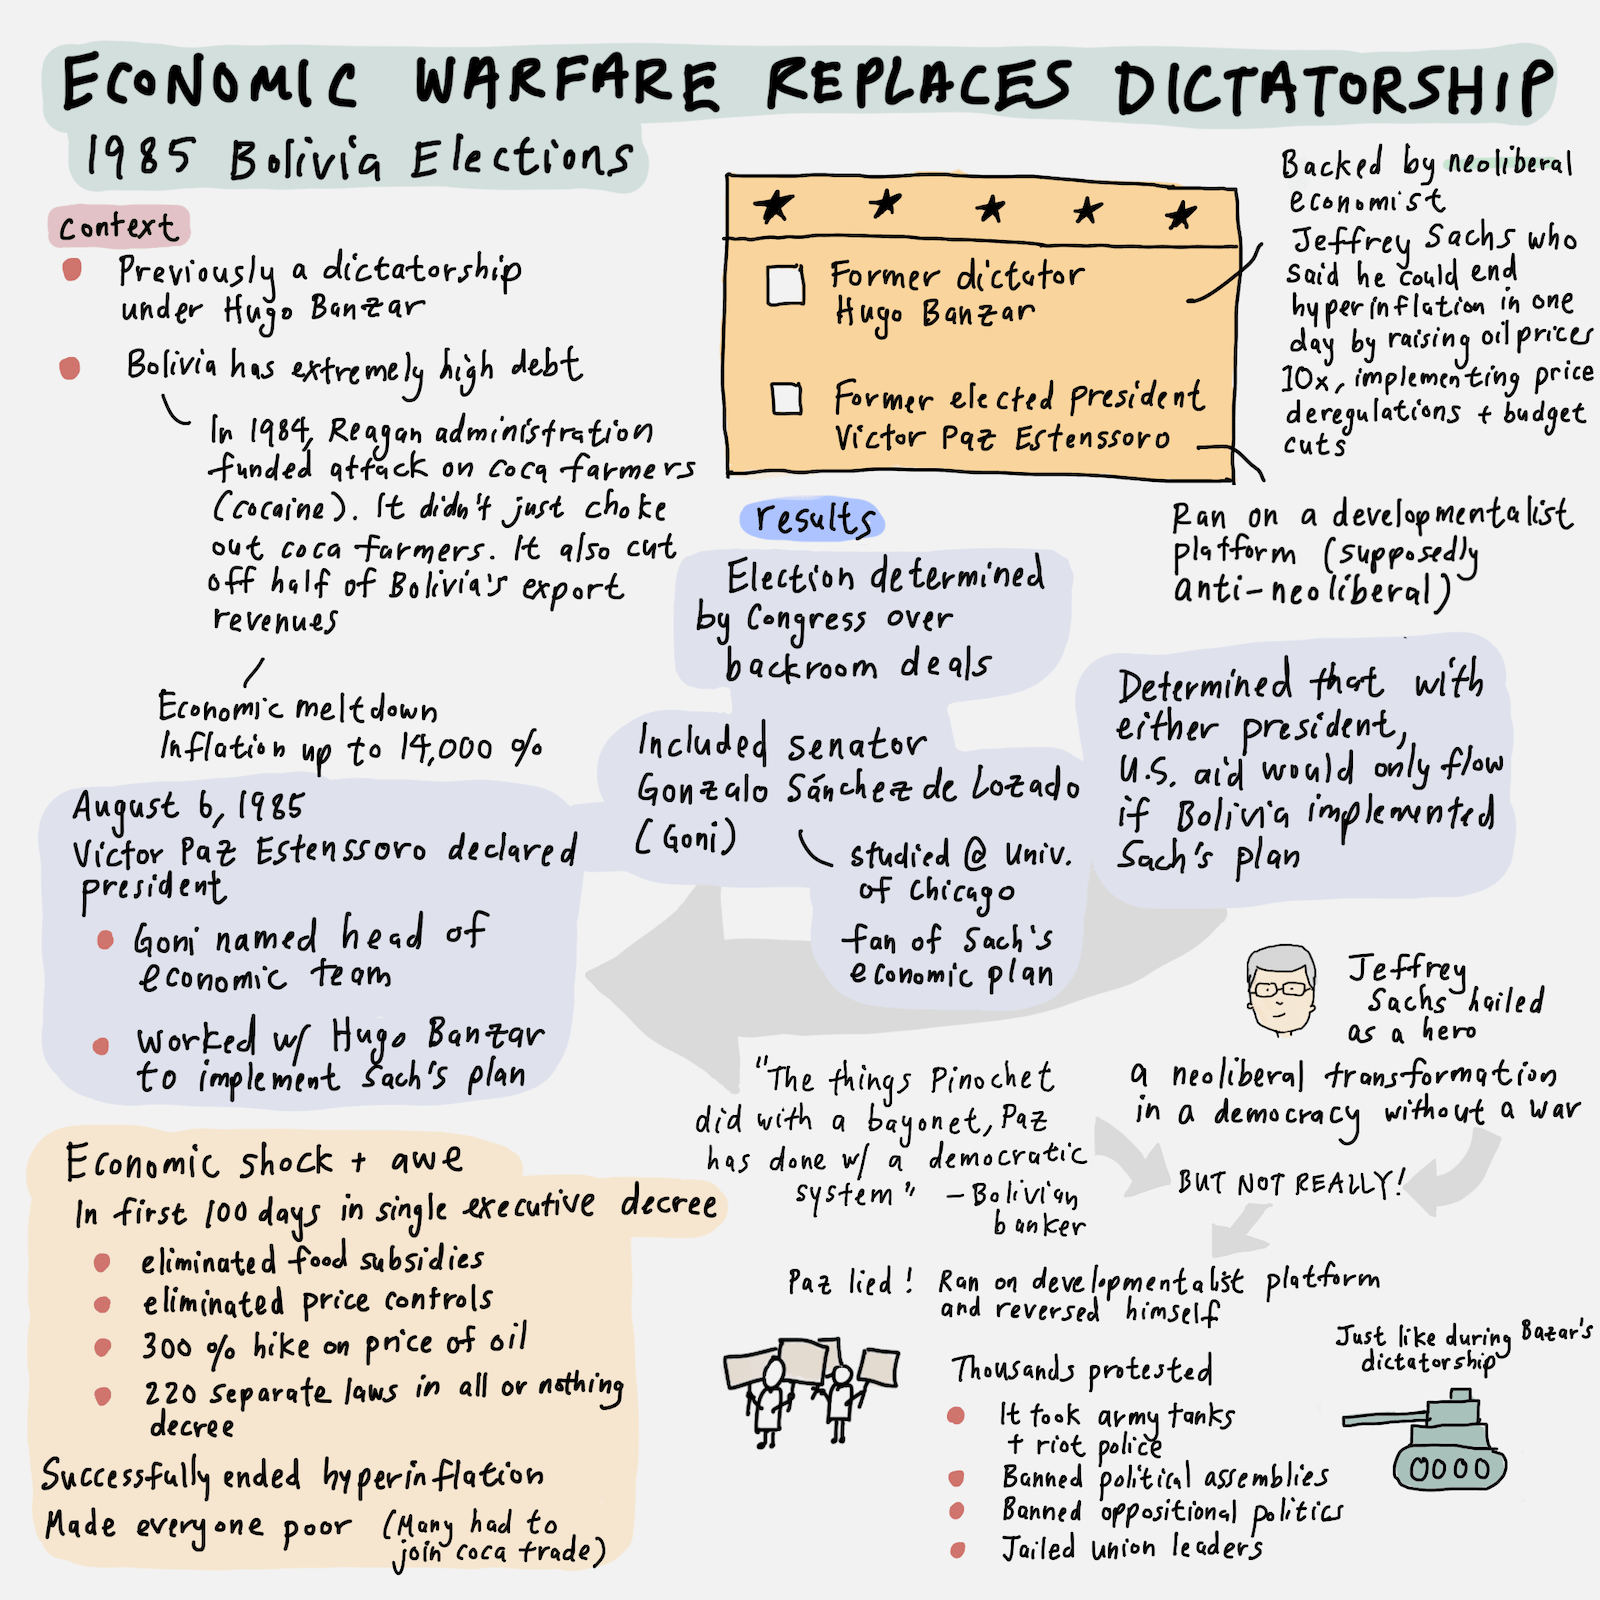 ECONOMIC WARFARE REPLACES DICTATORSHIP
1985 Bolivia Elections
context
Previously a dictatorship
under Hugo Banzar
Bolivia has extremely high debt
In 1984, Reagan administration
funded attack on coca farmers
(cocaine). It didn't just choke
out coca farmers. It also cut
off half of Bolivia's export
revenues
Economic meltdown
Inflation up to 14,000 %
Former dictator
Hugo Banzar
Former elected president
Victor Paz Estenssoro
Backed by neoliberal
economist
Jeffrey Sachs who
said he could end
hyperinflation in one
day by raising oil prices
10x, implementing price
deregulations + budget
cuts
Ran on a developmentalist
platform (supposedly
anti-neoliberal)
results
Election determined
by Congress over
backroom deals
Included senator
Gonzalo Sánchez de Lozado
(Goni)
studied @ Univ.
of Chicago
fan of Sach's
economic plan
Determined that with
either president,
U.S. aid would only flow
if Bolivia implemented
Sach's plan
August 6, 1985
Victor Paz Estenssoro declared
president
Goni named head of
economic team
worked w/ Hugo Banzar
to implement Sach's plan
Economic shock + awe
In first 100 days in single executive decree
eliminated food subsidies
eliminated price controls
300 % hike on price of oil
220 separate laws in all or nothing
decree
Successfully ended hyperinflation
Made everyone poor (Many had to
join coca trade)
"The things Pinochet
did with a bayonet, Paz
has done w/ a democratic
system" - Bolivian
banker
Jeffrey
Sachs hailed
as a hero
a neoliberal transformation
in a democracy without a war
BUT NOT REALLY!
Paz lied! Ran on developmentalist platform
and reversed himself
Thousands protested
It took army tanks
+ riot police
Banned political assemblies
Banned oppositional politics
Jailed union leaders
Just like during Bazar's
dictatorship